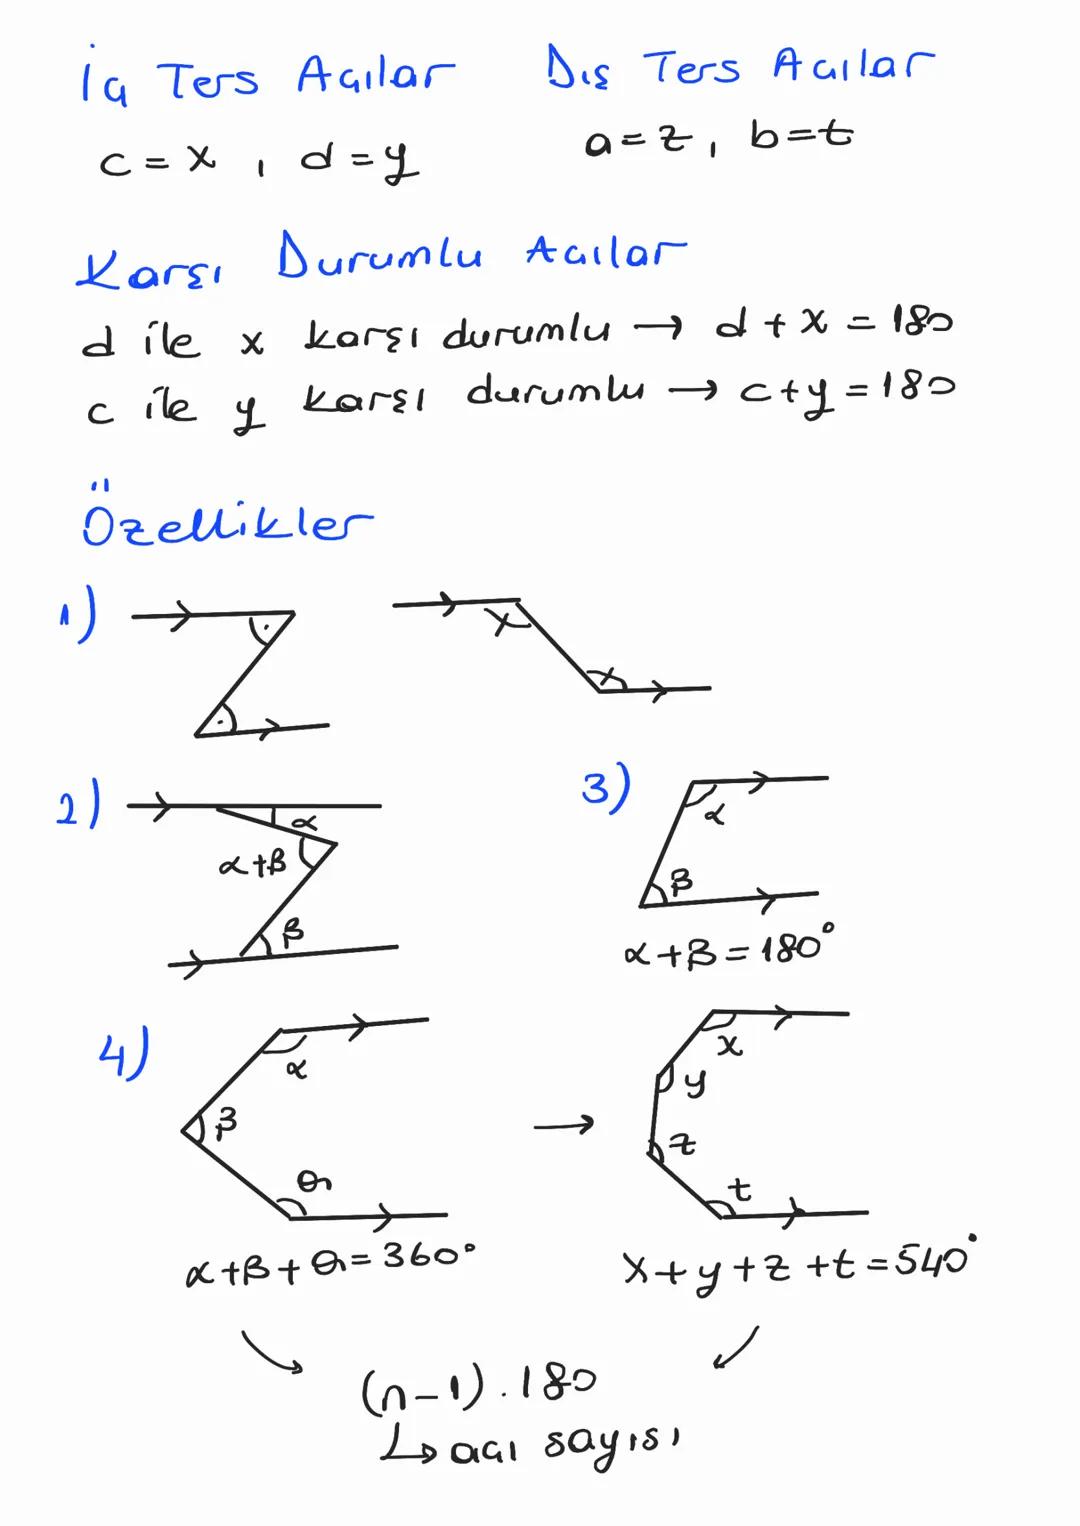 İç Ters Açılar Dış Ters Açılar
c = x , d = y a = z , b = t
Karşı Durumlu Açılar
d ile x karşı durumlu → d + x = 180
c ile y karşı durumlu → c + y = 180
Özellikler
1)
x
x
2) 3)
α α
α+β β
β
α + β = 180°
4)
α x
y
β → z
θ t
α + β + θ = 360° x + y + z + t = 540°
(n-1).180
↳ açı sayısı